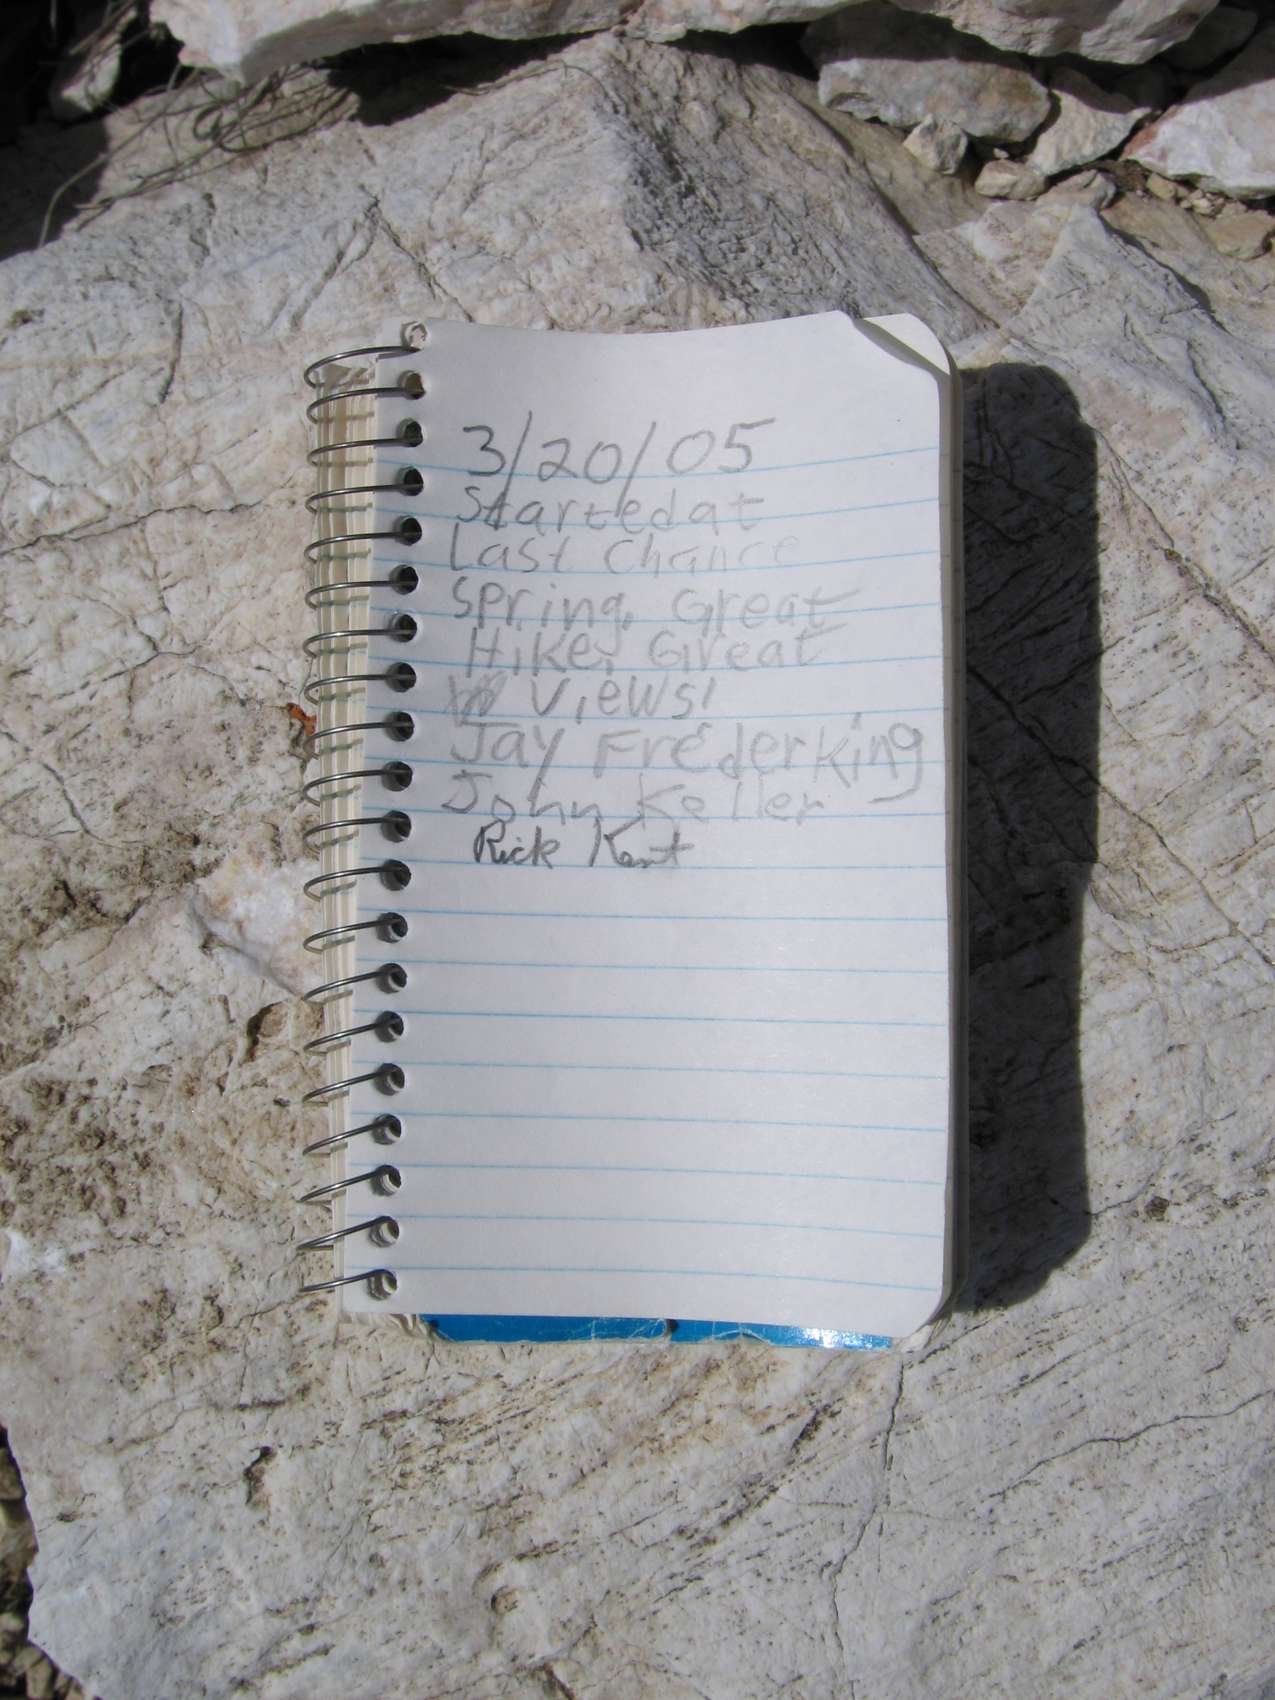 3/20/05
Started at
Last Chance
Spring, Great
Hike, Great
Views!
Jay Frederking
John Keller
Rick Kent